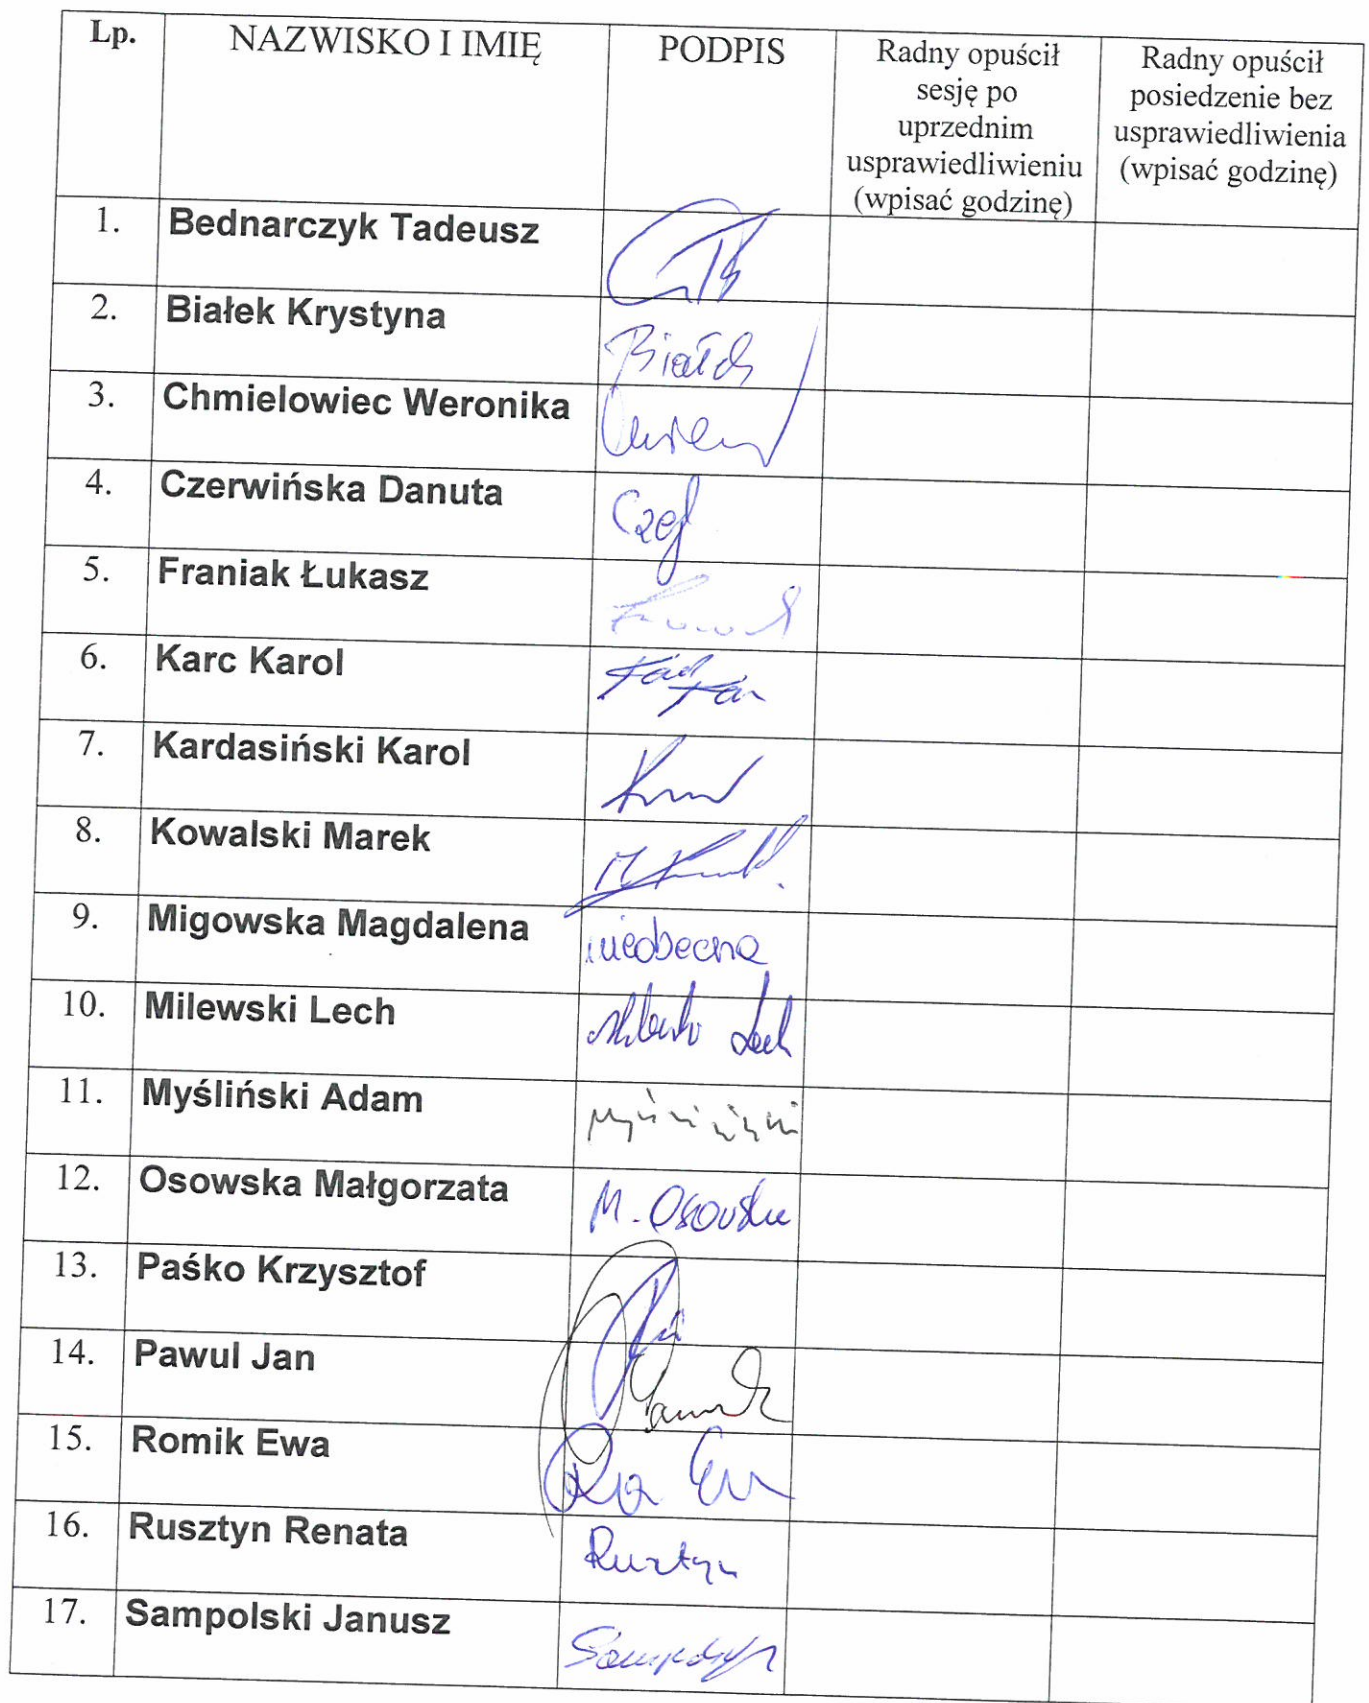 Lp. NAZWISKO I IMIĘ PODPIS Radny opuścił sesję po uprzednim usprawiedliwieniu (wpisać godzinę) Radny opuścił posiedzenie bez usprawiedliwienia (wpisać godzinę)
1. Bednarczyk Tadeusz
2. Białek Krystyna
3. Chmielowiec Weronika
4. Czerwińska Danuta
5. Franiak Łukasz
6. Karc Karol
7. Kardasiński Karol
8. Kowalski Marek
9. Migowska Magdalena nieobecna
10. Milewski Lech
11. Myśliński Adam
12. Osowska Małgorzata M. Osowska
13. Paśko Krzysztof
14. Pawul Jan
15. Romik Ewa
16. Rusztyn Renata Rusztyn
17. Sampolski Janusz